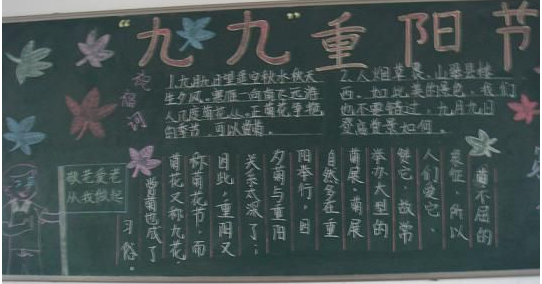 “九九”重阳节
祝福词
1.九月九日望遥空秋水秋天
生夕风。寒雁一向南飞远游
人几度菊花丛。在菊花争艳
的季节,可以赏菊。
2.人烟草
山
县楼
西。如此美的景色,我们
也不要错过,九月九日
登高赏景如何。
敬老爱老
从我做起
菊不屈的
象征,所以
人们爱它、
赞它,故常
举办大型的
菊展,菊展
自然多在重
阳举行,因
为菊与重阳
关系太深了;
因此,重阳又
称菊花节,而
菊花又称九花,
赏菊也成了
习俗。